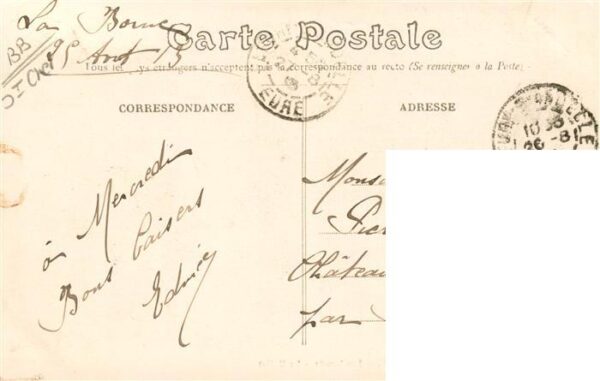 La Borne
25 Aout 13
BB
Carte Postale
Tous les ys étrangers n'acceptent pas la correspondance au recto (Se renseigner à la Poste)
EURE
CORRESPONDANCE
ADRESSE
10 35
26 -8
à Mercredi
Bons baisers
Mons
Pier
Château
par